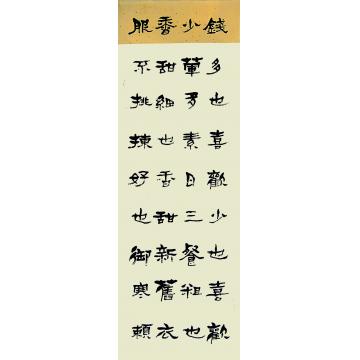 錢多也喜歡少也喜歡
少葷多素日三餐粗也
香甜細也香甜新舊衣
服不挑揀好也御寒賴